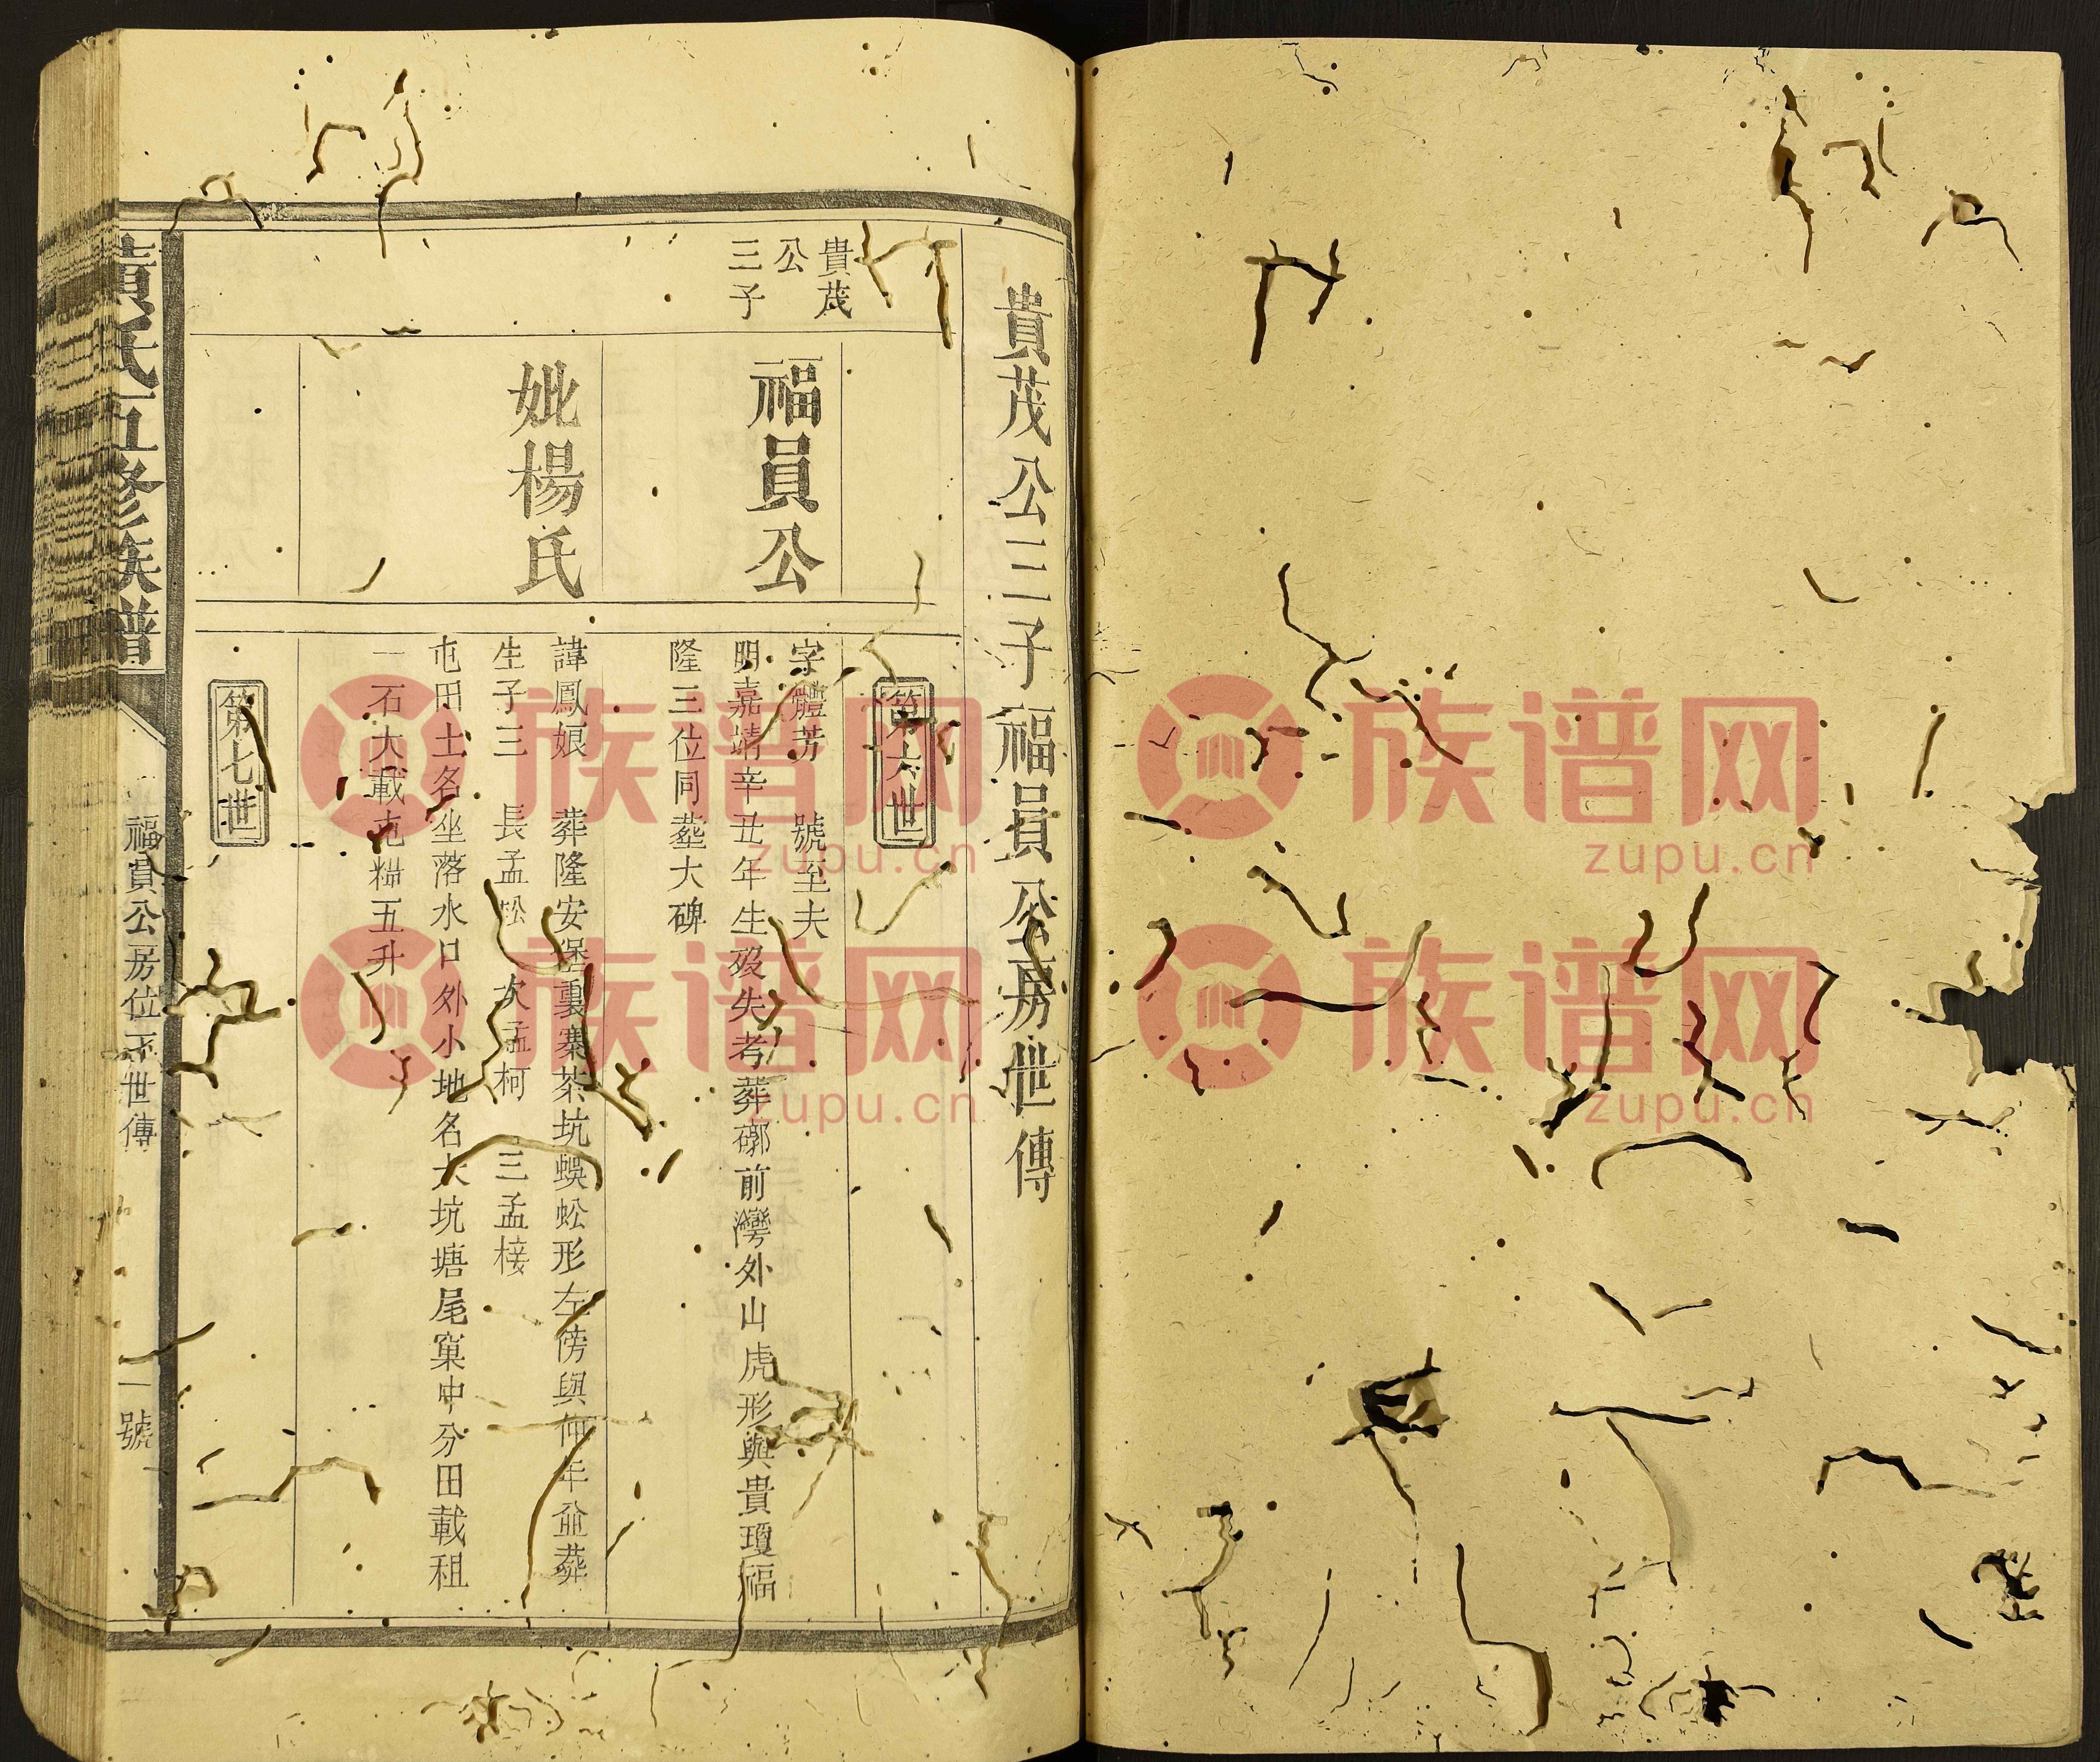 貴茂公三子福員公房世傳
貴茂
公
三子
第六世
福員公
字體芳 號至夫
明嘉靖辛丑年生歿失考葬鄉前灣外山虎形與貴瓊福
隆三位同塟大碑
妣楊氏
諱鳳娘 葬隆安堡裏寨茶坑蜈蚣形左傍與仲年兪葬
生子三 長孟松 次孟柯 三孟椄
屯田土名坐落水口外小地名大坑塘尾窠中分田載租
一石大載屯糧五升
第七世
氏五修族譜
福員公房位下世傳
一號
族谱网
zupu.cn
族谱网
zupu.cn
族谱网
zupu.cn
族谱网
zupu.cn